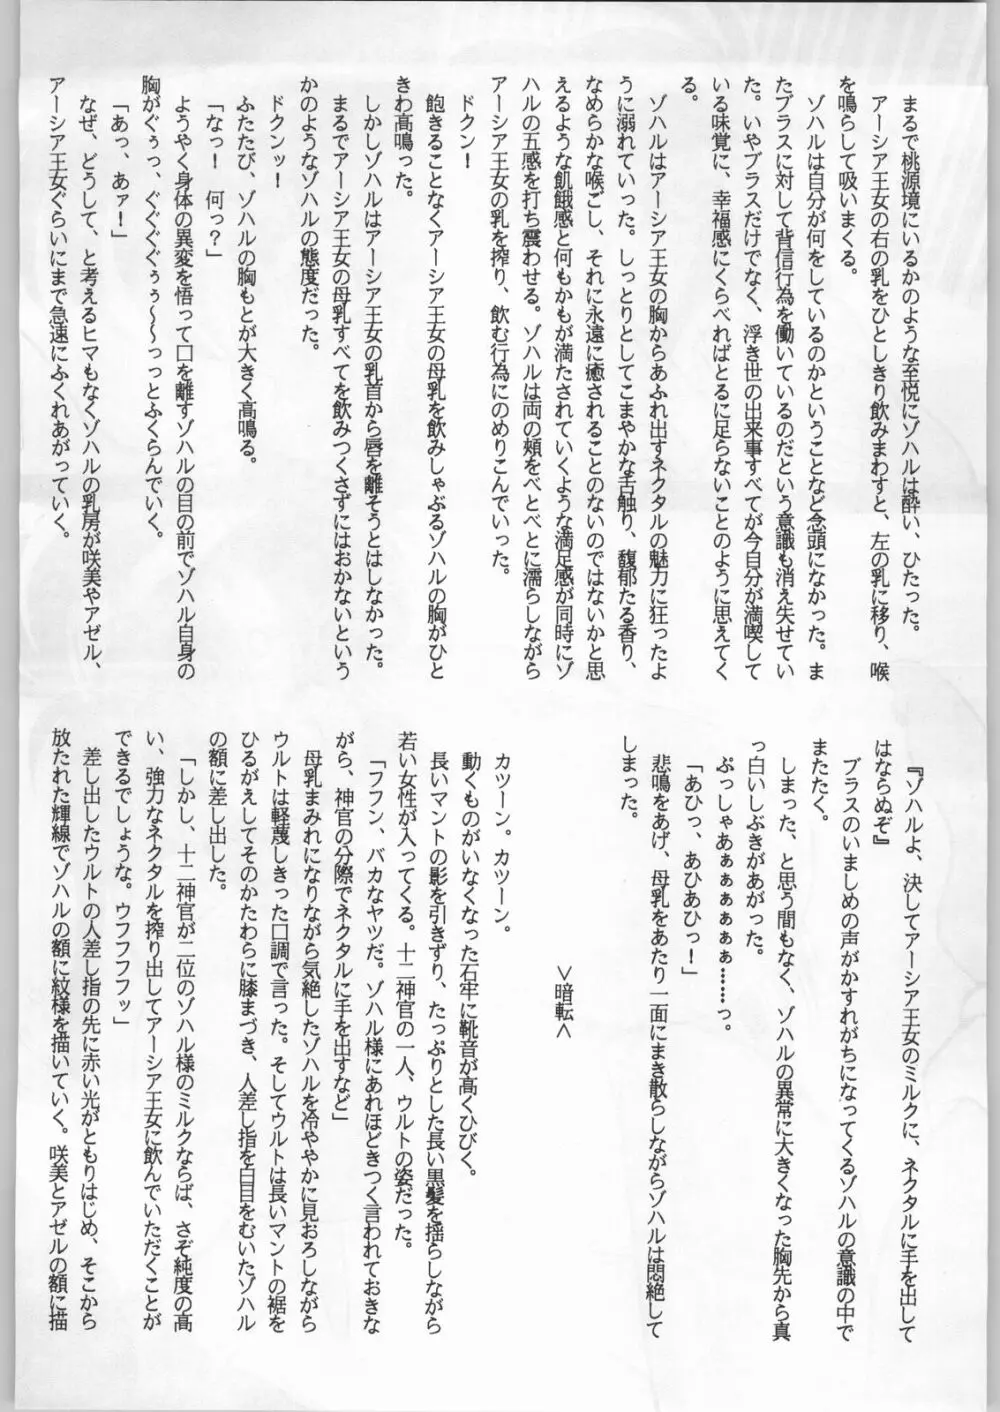 まるで桃源境にいるかのような至悦にゾハルは酔い、ひたった。
アーシア王女の右の乳をひとしきり飲みまわすと、左の乳に移り、喉
を鳴らして吸いまくる。
ゾハルは自分が何をしているのかということなど念頭になかった。ま
たブラスに対して背信行為を働いているのだという意識も消え失せてい
た。いやブラスだけでなく、浮き世の出来事すべてが今自分が満喫して
いる味覚に、幸福感にくらべればとるに足らないことのように思えてく
る。
ゾハルはアーシア王女の胸からあふれ出すネクタルの魅力に狂ったよ
うに溺れていった。しっとりとしてこまやかな舌触り、馥郁たる香り、
なめらかな喉ごし、それに永遠に癒されることのないのではないかと思
えるような飢餓感と何もかもが満たされていくような満足感が同時にゾ
ハルの五感を打ち震わせる。ゾハルは両の頬をべとべとに濡らしながら
アーシア王女の乳を搾り、飲む行為にのめりこんでいった。
ドクン!
飽きることなくアーシア王女の母乳を飲みしゃぶるゾハルの胸がひと
きわ高鳴った。
しかしゾハルはアーシア王女の乳首から唇を離そうとはしなかった。
まるでアーシア王女の母乳すべてを飲みつくさずにはおかないという
かのようなゾハルの態度だった。
ドクンッ!
ふたたび、ゾハルの胸もとが大きく高鳴る。
「なっ! 何っ?」
ようやく身体の異変を悟って口を離すゾハルの目の前でゾハル自身の
胸がぐぅっ、ぐぐぐぐぅぅ〜〜っっとふくらんでいく。
「あっ、あァ!」
なぜ、どうして、と考えるヒマもなくゾハルの乳房が咲美やアゼル、
アーシア王女ぐらいにまで急速にふくれあがっていく。
『ゾハルよ、決してアーシア王女のミルクに、ネクタルに手を出して
はならぬぞ』
ブラスのいましめの声がかすれがちになってくるゾハルの意識の中で
またたく。
しまった、と思う間もなく、ゾハルの異常に大きくなった胸先から真
っ白いしぶきがあがった。
ぷっしゃあぁぁぁぁぁぁ……っ。
「あひっ、あひあひっ!」
悲鳴をあげ、母乳をあたり一面にまき散らしながらゾハルは悶絶して
しまった。
>暗転<
カツーン。カツーン。
動くものがいなくなった石牢に靴音が高くひびく。
長いマントの影を引きずり、たっぷりとした長い黒髪を揺らしながら
若い女性が入ってくる。十二神官の一人、ウルトの姿だった。
「フフン、バカなヤツだ。ゾハル様にあれほどきつく言われておきな
がら、神官の分際でネクタルに手を出すなど」
母乳まみれになりながら気絶したゾハルを冷ややかに見おろしながら
ウルトは軽蔑しきった口調で言った。そしてウルトは長いマントの裾を
ひるがえしてそのかたわらに膝まづき、人差し指を白目をむいたゾハル
の額に差し出した。
「しかし、十二神官が二位のゾハル様のミルクならば、さぞ純度の高
い、強力なネクタルを搾り出してアーシア王女に飲んでいただくことが
できるでしょうな。ウフフフフッ」
差し出したウルトの人差し指の先に赤い光がともりはじめ、そこから
放たれた輝線でゾハルの額に紋様を描いていく。咲美とアゼルの額に描